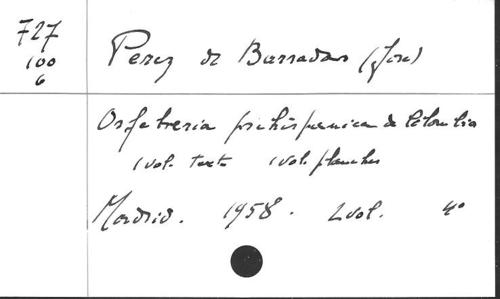 727
100
6
Perez de Barradas (José)
Orfebreria prehispanica de Colombia
1 vol. texte 1 vol. planches
Madrid. 1958. 2 vol. 4°